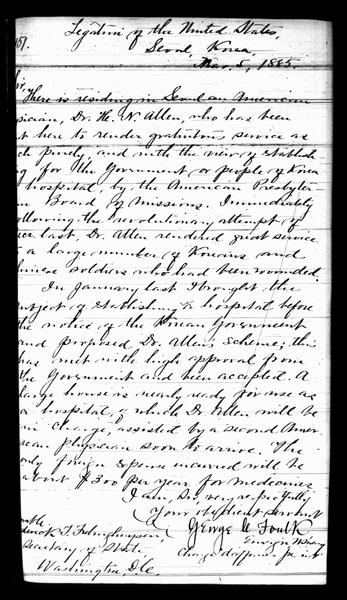 Legation of the United States,
Seoul, Korea,
Mar. 5, 1885.
There is residing in Seoul an American
sician, Dr. H. N. Allen, who has been
t here to render gratuitous service as
ch purely, and with the view of establish
g for the Government or people of Korea
hospital, by the American Presbyter
n Board of Missions. Immediately
ollowing the revolutionary attempt of
last, Dr. Allen rendered great service
a large number of Koreans and
hinese soldiers who had been wounded.
In January last I brought the
subject of establishing a hospital before
the notice of the Korean Government
and proposed Dr. Allen's scheme; this
has met with high approval from
the Government and been accepted. A
large house is nearly ready for use as
a hospital, of which Dr. Allen will be
in charge, assisted by a second Amer
ican physician soon to arrive. The
only foreign expense incurred will be
about $300 per year for medicines
I am, Sir, very respectfully
Your obedient servant
George C. Foulk
Ensign U.S. Navy
Chargé d'affaires
T. Frelinghuysen,
Secretary of State,
Washington, D.C.